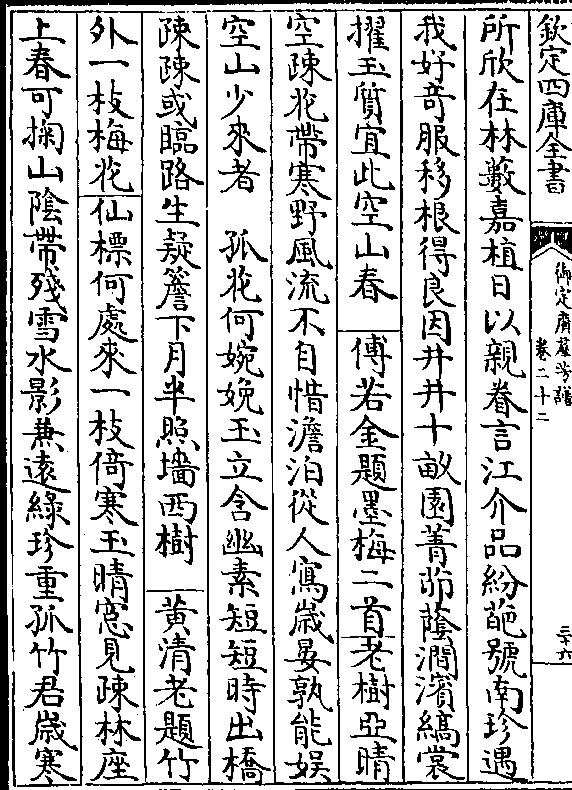 欽定四庫全書
御定廣群芳譜
卷二十二
二十六
所欣在林藪嘉植日以親眷言江介品紛葩號南珍遇
我好竒服移根得良因井井十畝園菁茆蔭澗濵縞裳
擢玉質宜此空山春　傅若金題墨梅二首老樹亞晴
空疎花帶寒野風流不自惜澹泊從人寫歲晏孰能娱
空山少來者　孤花何婉娩玉立含幽素短短時出橋
疎疎或臨路生疑簷下月半照墻西樹　黄清老題竹
外一枝梅花仙標何處來一枝倚寒玉晴窓見疎林座
上春可掬山陰帶殘雪水影兼遠綠珍重孤竹君歲寒